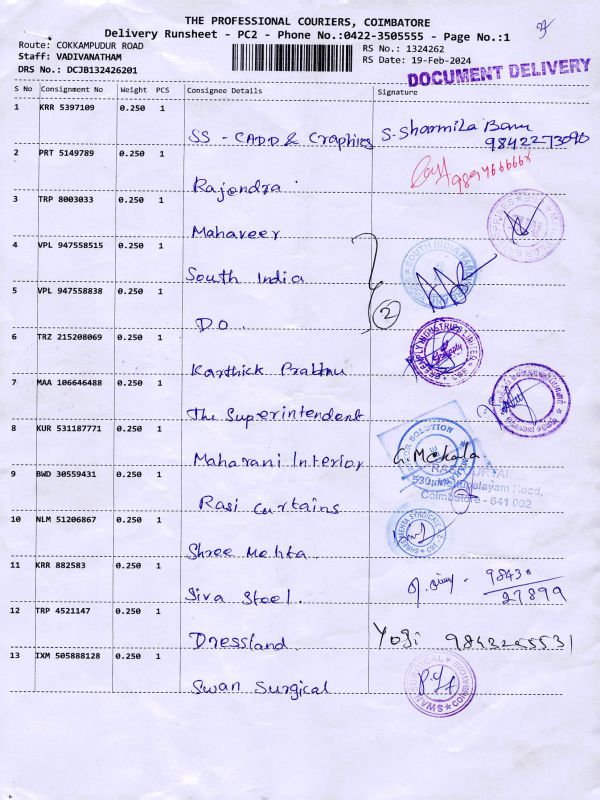 THE PROFESSIONAL COURIERS, COIMBATORE
Delivery Runsheet - PC2 - Phone No.:0422-3505555 - Page No.:1
Route: COKKAMPUDUR ROAD
RS No.: 1324262
Staff: VADIVANATHAM
RS Date: 19-Feb-2024
DRS No.: DCJB132426201
DOCUMENT DELIVERY
S No Consignment No Weight PCS Consignee Details Signature
1 KRR 5397109 0.250 1
SS - CADD & Graphics S. Sharmila Banu
9842273090
2 PRT 5149789 0.250 1
Rajendra
3 TRP 8003033 0.250 1
Mahaveer
4 VPL 947558515 0.250 1
South India
5 VPL 947558838 0.250 1
D.O. 2
6 TRZ 215208069 0.250 1
Karthick Prabhu
7 MAA 106646488 0.250 1
The Superintendent
8 KUR 531187771 0.250 1
Maharani Interior G. Mekala
9 BWD 30559431 0.250 1
Rasi Curtains
Coimbatore - 641 002
10 NLM 51206867 0.250 1
Shree Mehta
11 KRR 882583 0.250 1
Siva Steel. 98430
27899
12 TRP 4521147 0.250 1
Dressland Yogi 9842205531
13 IXM 505888128 0.250 1
Swan Surgical